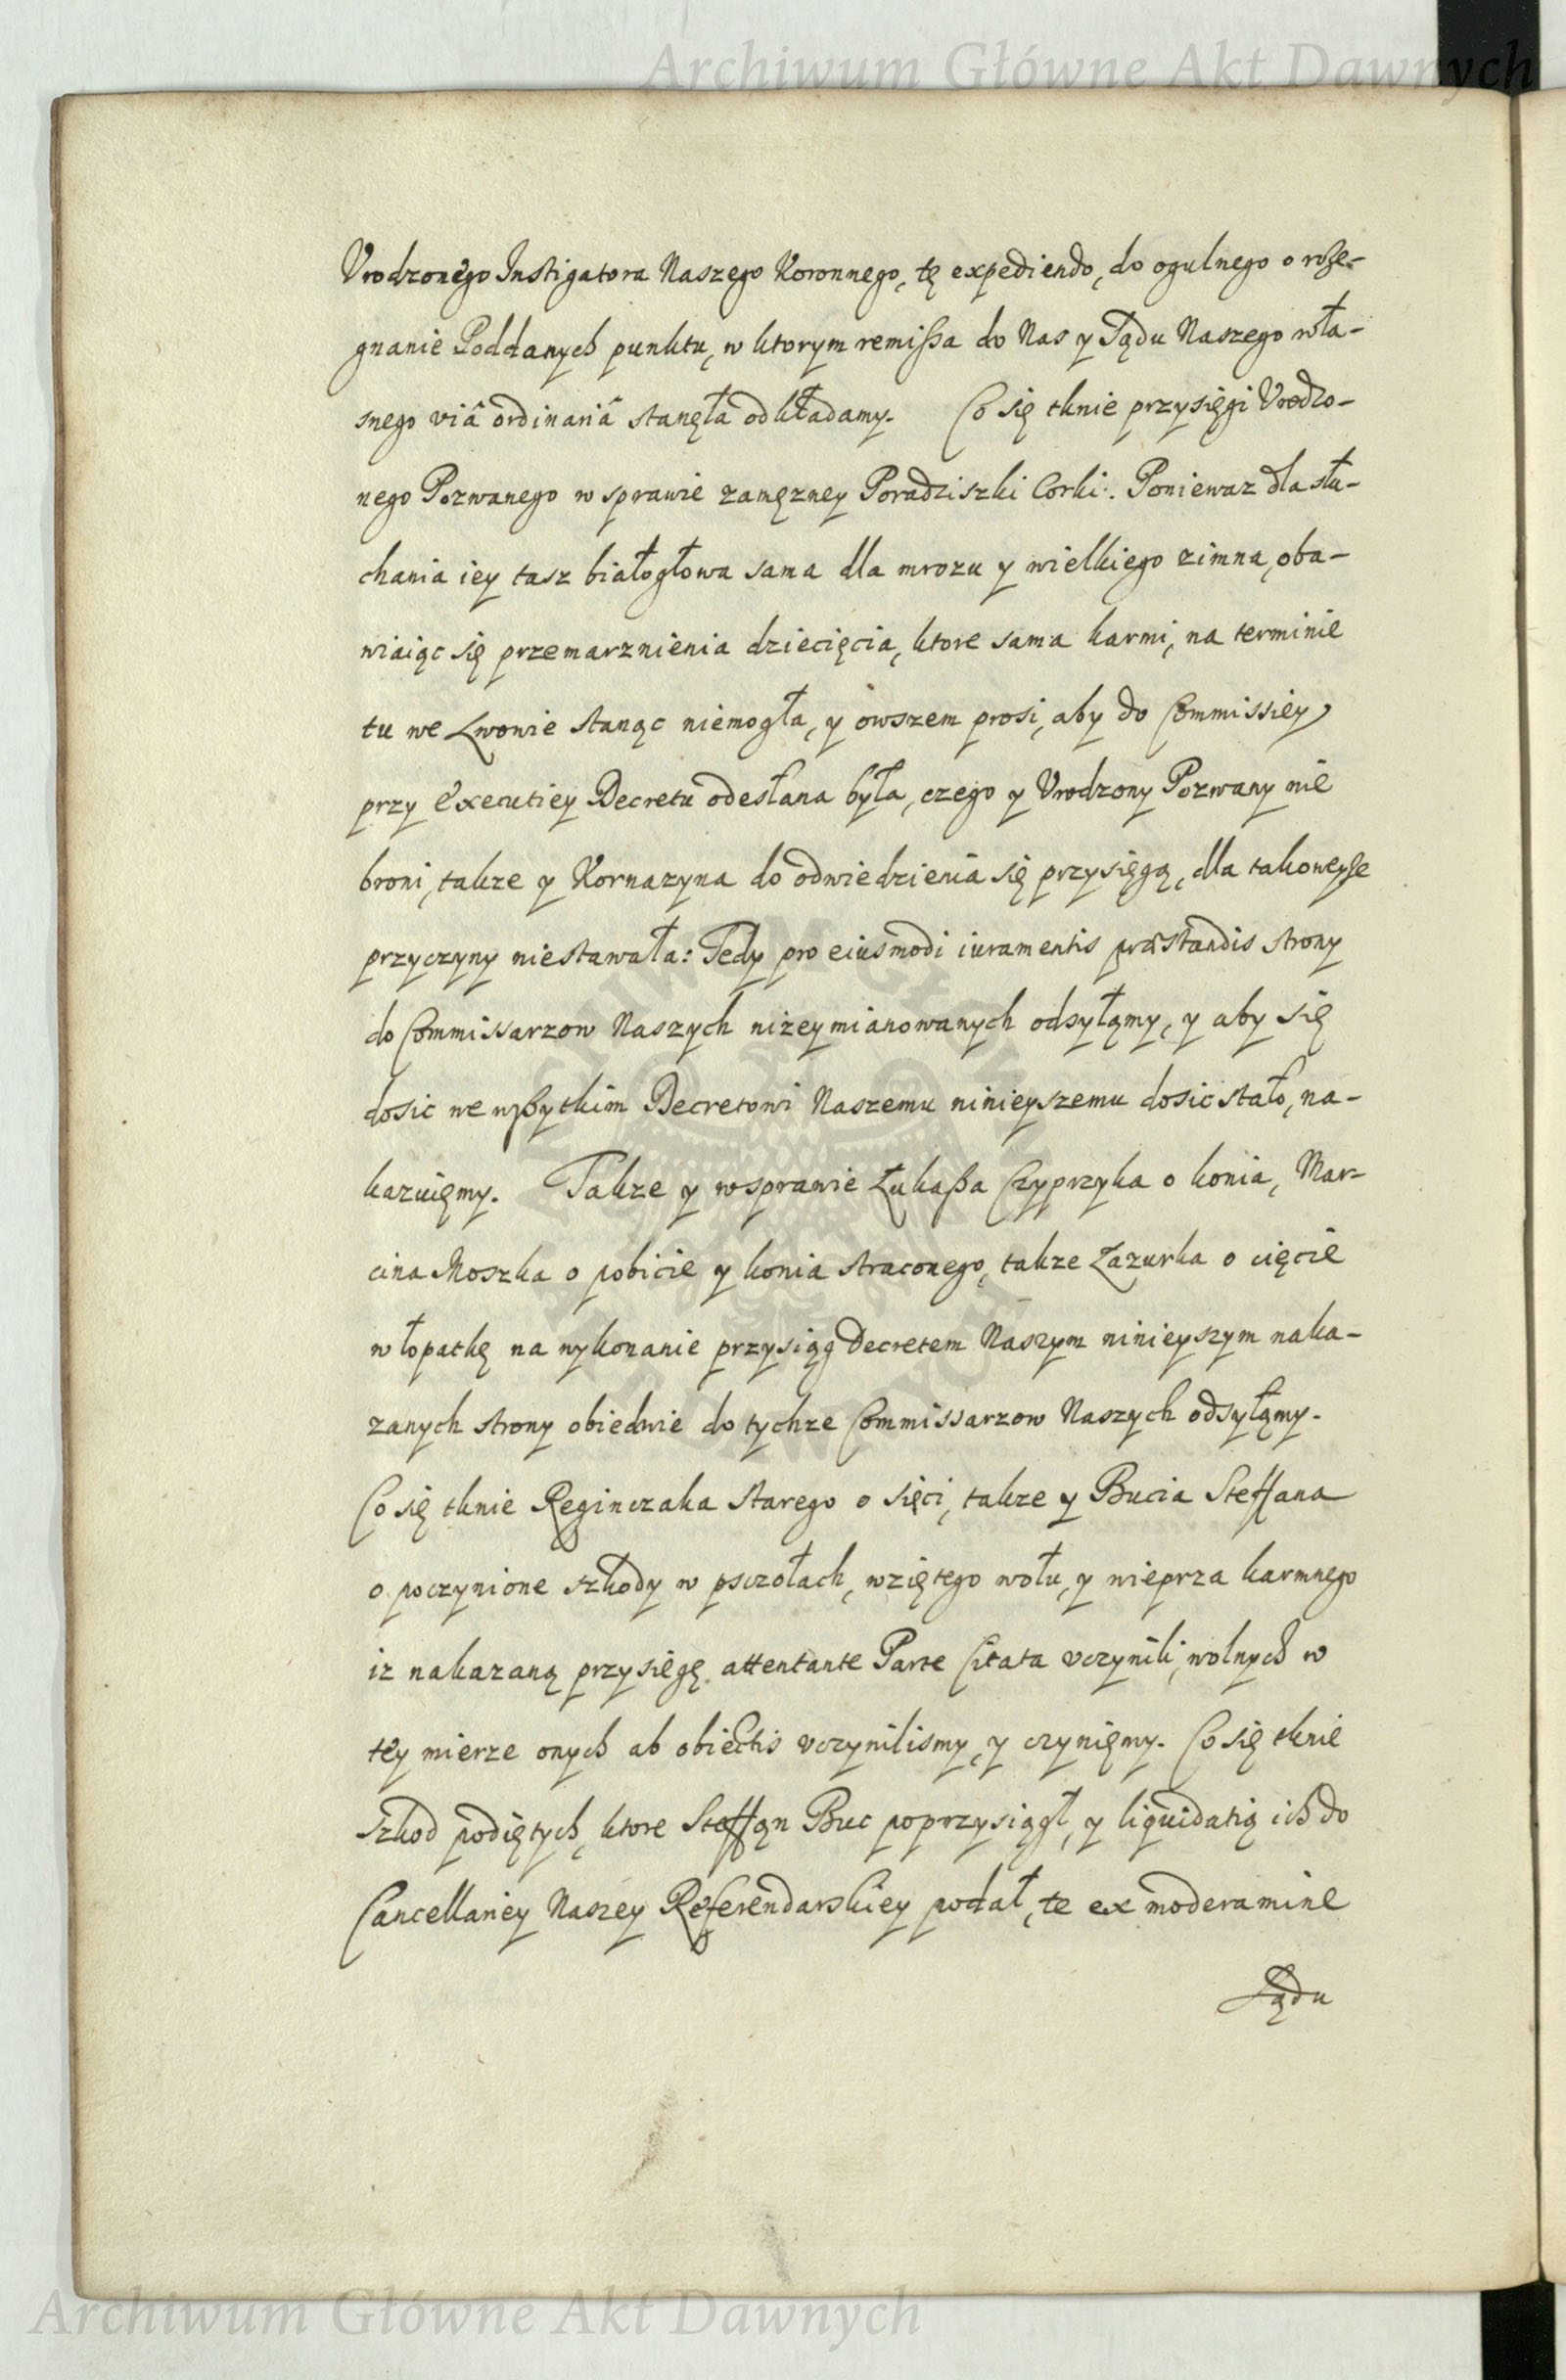 Archiwum Główne Akt Dawnych
Vrodzonego Instigatora Naszego Koronnego, tę expediendo, do ogulnego o roze-
gnanie Poddanych punktu, w ktorym remissa do Nas y Sądu Naszego wła-
snego viâ ordinariâ stanęła odkładamy. Co się tknie przysięgi Vrodzo-
nego Pozwanego w sprawie zamęzney Poradziszki Corki. Poniewaz dla słu-
chania iey tasz białogłowa sama dla mrozu y wielkiego zimna, oba-
wiaiąc się przemarznienia dziecięcia, ktore sama karmi, na terminie
tu we Lwowie stanąc niemogła, y owszem prosi, aby do Commissiey
przy Executiey Decretu odesłana była, czego y Vrodzony Pozwany nie
broni, takze y Kornazyna do odwiedzienia się przysięgą, dla takoweysze
przyczyny niestawała: Tedy pro eiusmodi iuramentis præstandis strony
do Commissarzow Naszych nizeymianowanych odsyłamy, y aby się
dosic we wszytkim Decretowi Naszemu ninieyszemu dosic stało, na-
kazuięmy. Takze y w sprawie Łukasza Czyprzyka o konia, Mar-
cina Moszka o pobicie y konia straconego, takze Łazurka o cięcie
w łopatkę na wykonanie przysiąg Decretem Naszym ninieyszym naka-
zanych strony obiedwie do tychze Commissarzow Naszych odsyłamy.
Co się tknie Reginczaka starego o sięci, takze y Bucia Steffana
o poczynione szkody w psczołach, wziętego wołu, y wieprza karmnego
iz nakazaną przysięgę attentante Parte Citata vczynili, wolnych w
tey mierze onych ab obiectis vczynilismy, y czynięmy. Co się tknie
Szkod podiętych, ktore Steffan Buc poprzysiągł, y liquidatią ich do
Cancellariey Naszey Referendarskiey podał, te ex moderamine
Sądu
Archiwum Główne Akt Dawnych